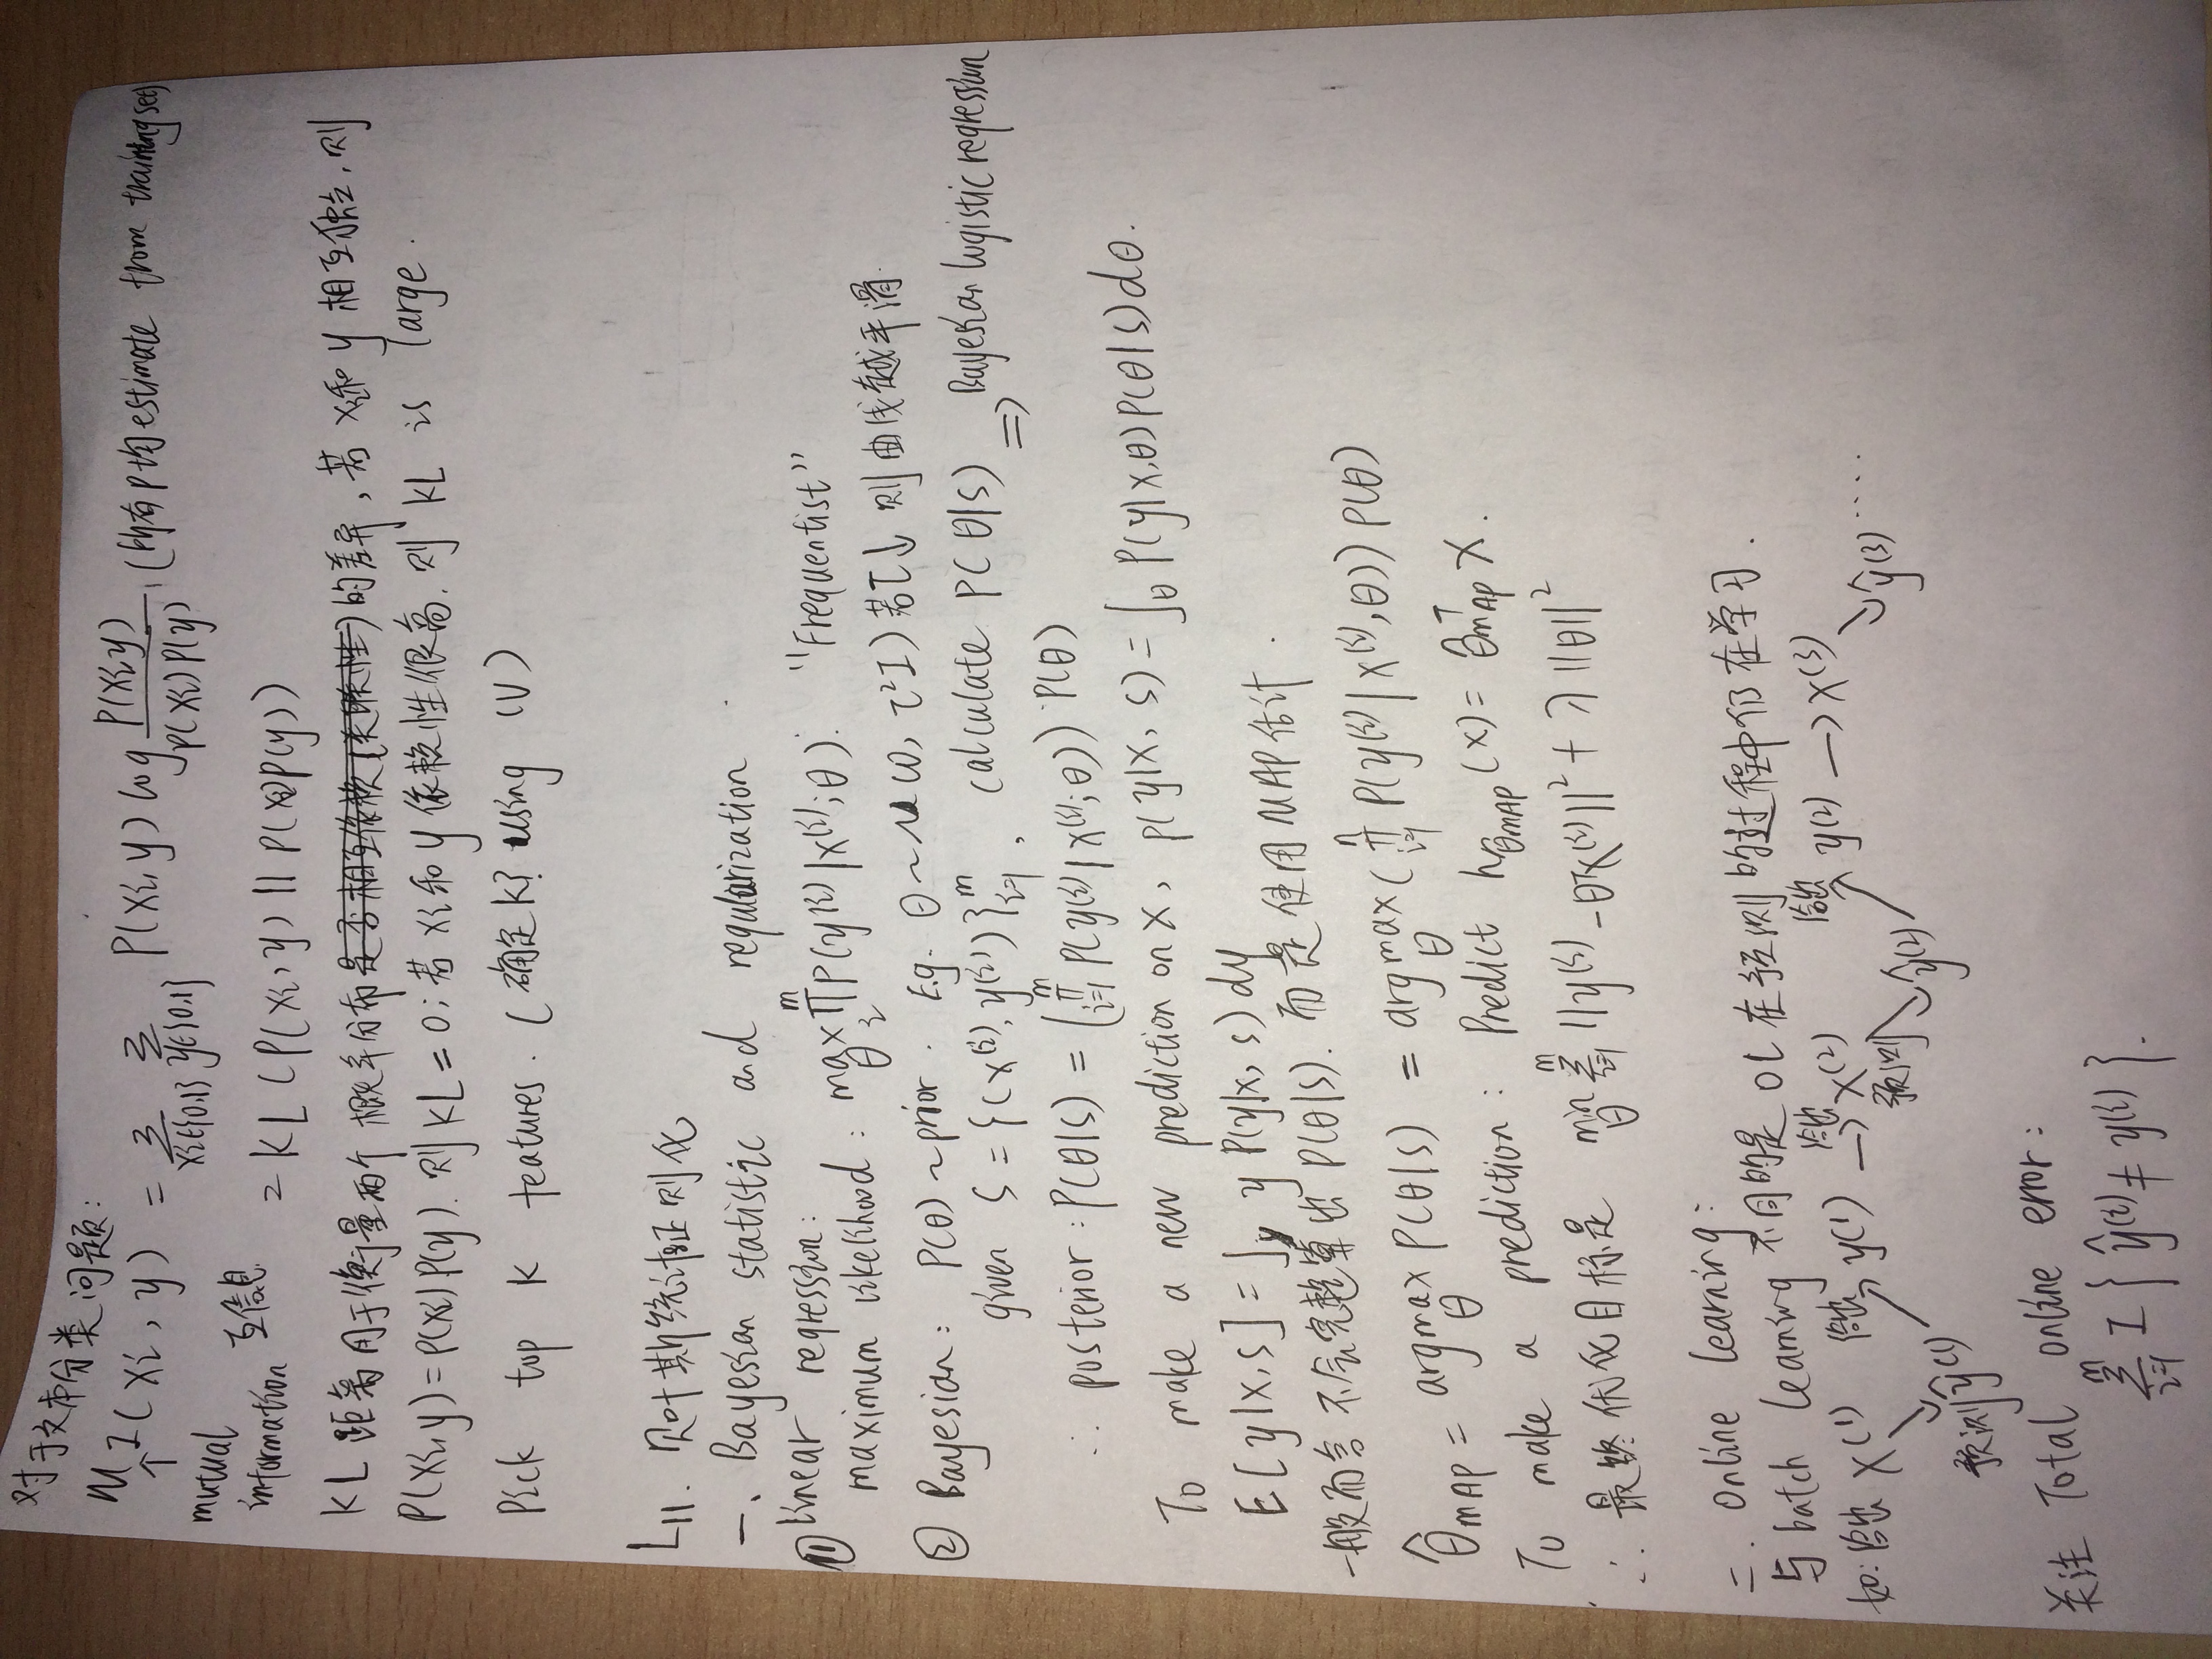 对于文本分类问题:
MI(xi, y) = Σ_{xi∈{0,1}} Σ_{y∈{0,1}} P(xi, y) log P(xi, y)/(P(xi)P(y)). (所有P均estimate from training set)
↑
mutual
information 互信息
= KL (P(xi, y) || P(xi)P(y))
KL 距离用于衡量两个概率分布的差异, 若 xi和 y 相互独立, 则
P(xi, y) = P(xi) P(y). 则 KL = 0; 若 xi 和 y 依赖性很高, 则 KL is large.
Pick top K features. (确定K? using CV)
L11. 贝叶斯统计正则化
一、Bayesian statistic and regularization
① linear regression:
maximum likelihood: max_θ Π_i^m P(y^(i) | x^(i); θ): "Frequentist"
② Bayesian: P(θ) ~ prior. E.g. θ ~ N(0, τ²I) 若τ↓ 则曲线越平滑.
given S = {(x^(i), y^(i))}_{i=1}^m, calculate P(θ|S) ⇒ Bayesian logistic regression
∴ posterior: P(θ|S) = (Π_{i=1}^m P(y^(i) | x^(i); θ)) · P(θ)
To make a new prediction on x, P(y|x, S) = ∫_θ P(y|x, θ) P(θ|S) dθ.
E[y|x, S] = ∫_y y P(y|x, S) dy
一般而言不会完整算出 P(θ|S). 而是使用MAP估计.
θ̂_MAP = argmax_θ P(θ|S) = argmax_θ (Π_{i=1}^n P(y^(i) | x^(i), θ)) P(θ)
To make a prediction: Predict h_θ̂MAP (x) = θ̂_MAP^T x.
∴ 最终优化目标是 min_θ Σ_{i=1}^m ||y^(i) - θ^T x^(i)||² + λ||θ||²
二. Online learning:
与 batch learning 不同的是 OL 在预测的过程中仍在学习.
如: 给出 x^(1) 给出 y(1) 给出 → x(2) 给出 y(2) → x(3)
预测 ŷ(1) 预测 ŷ(2) ŷ(3) ....
关注 Total online error:
Σ_{i=1}^m I { ŷ^(i) ≠ y^(i) }.